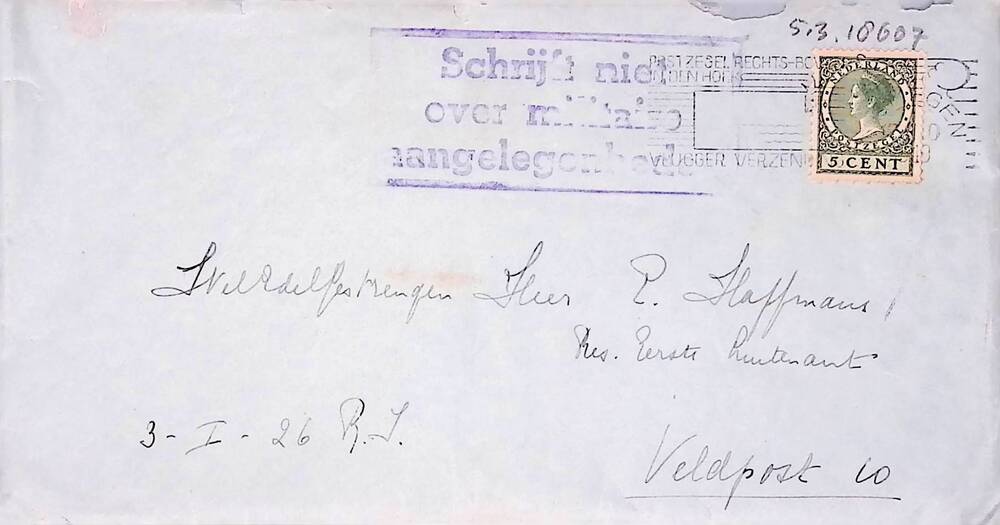 5.3.18607
Schrijft niet
over militaire
aangelegenheden
POSTZEGEL RECHTS-BO
IN DEN HOEK
VLUGGER VERZEN
GEN
NEDERLAND
POSTZEGEL
5 CENT
WelEdelGestrengen Heer P. Haffmans,
Res. Eerste Luitenant
3-I-26 R.I.
Veldpost 10